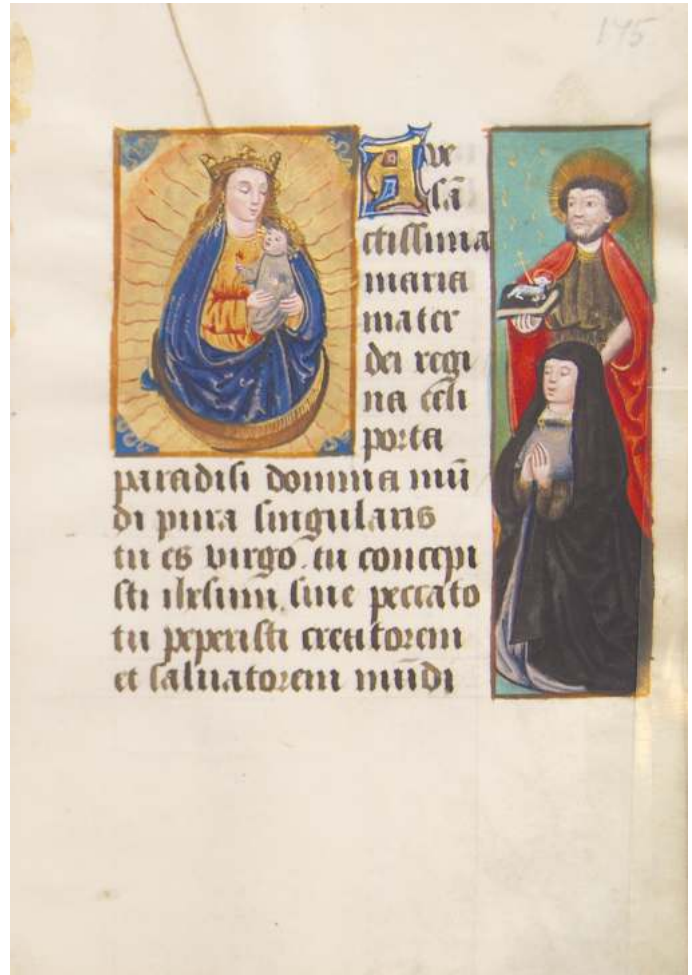 175
Ave
sã
ctissima
maria
mater
dei regi
na celi
porta
paradisi domina mũ
di pura singularis
tu es virgo. tu concepi
sti ihesum. sine peccato
tu peperisti creatorem
et saluatorem mũdi